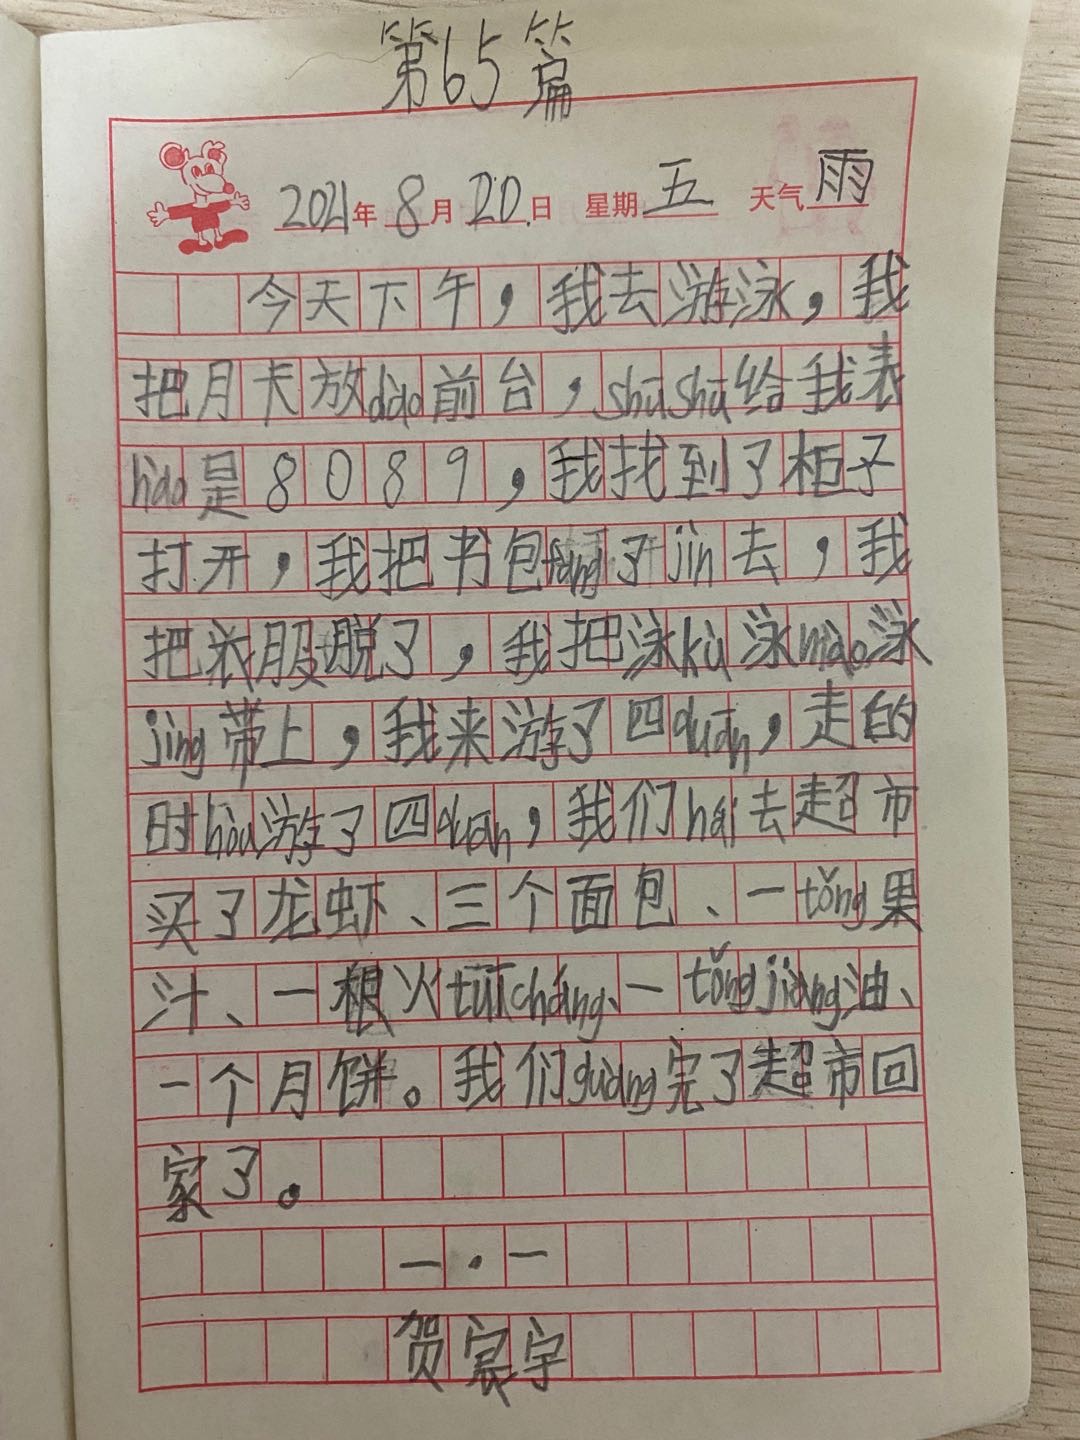 第65篇
2021年8月20日 星期五 天气雨
今天下午，我去游泳，我
把月卡放dào前台，shūshū给我表
hào是8089，我找到了柜子
打开，我把书包fàng了jìn去，我
把衣服脱了，我把泳kù泳mào泳
jìng带上，我来游了四quān，走的
时hòu游了四quān，我们hái去超市
买了龙虾、三个面包、一tǒng果
汁、一根火tuǐcháng、一tǒngjiàng油、
一个月饼。我们guàng完了超市回
家了。
一·一
贺宸宇